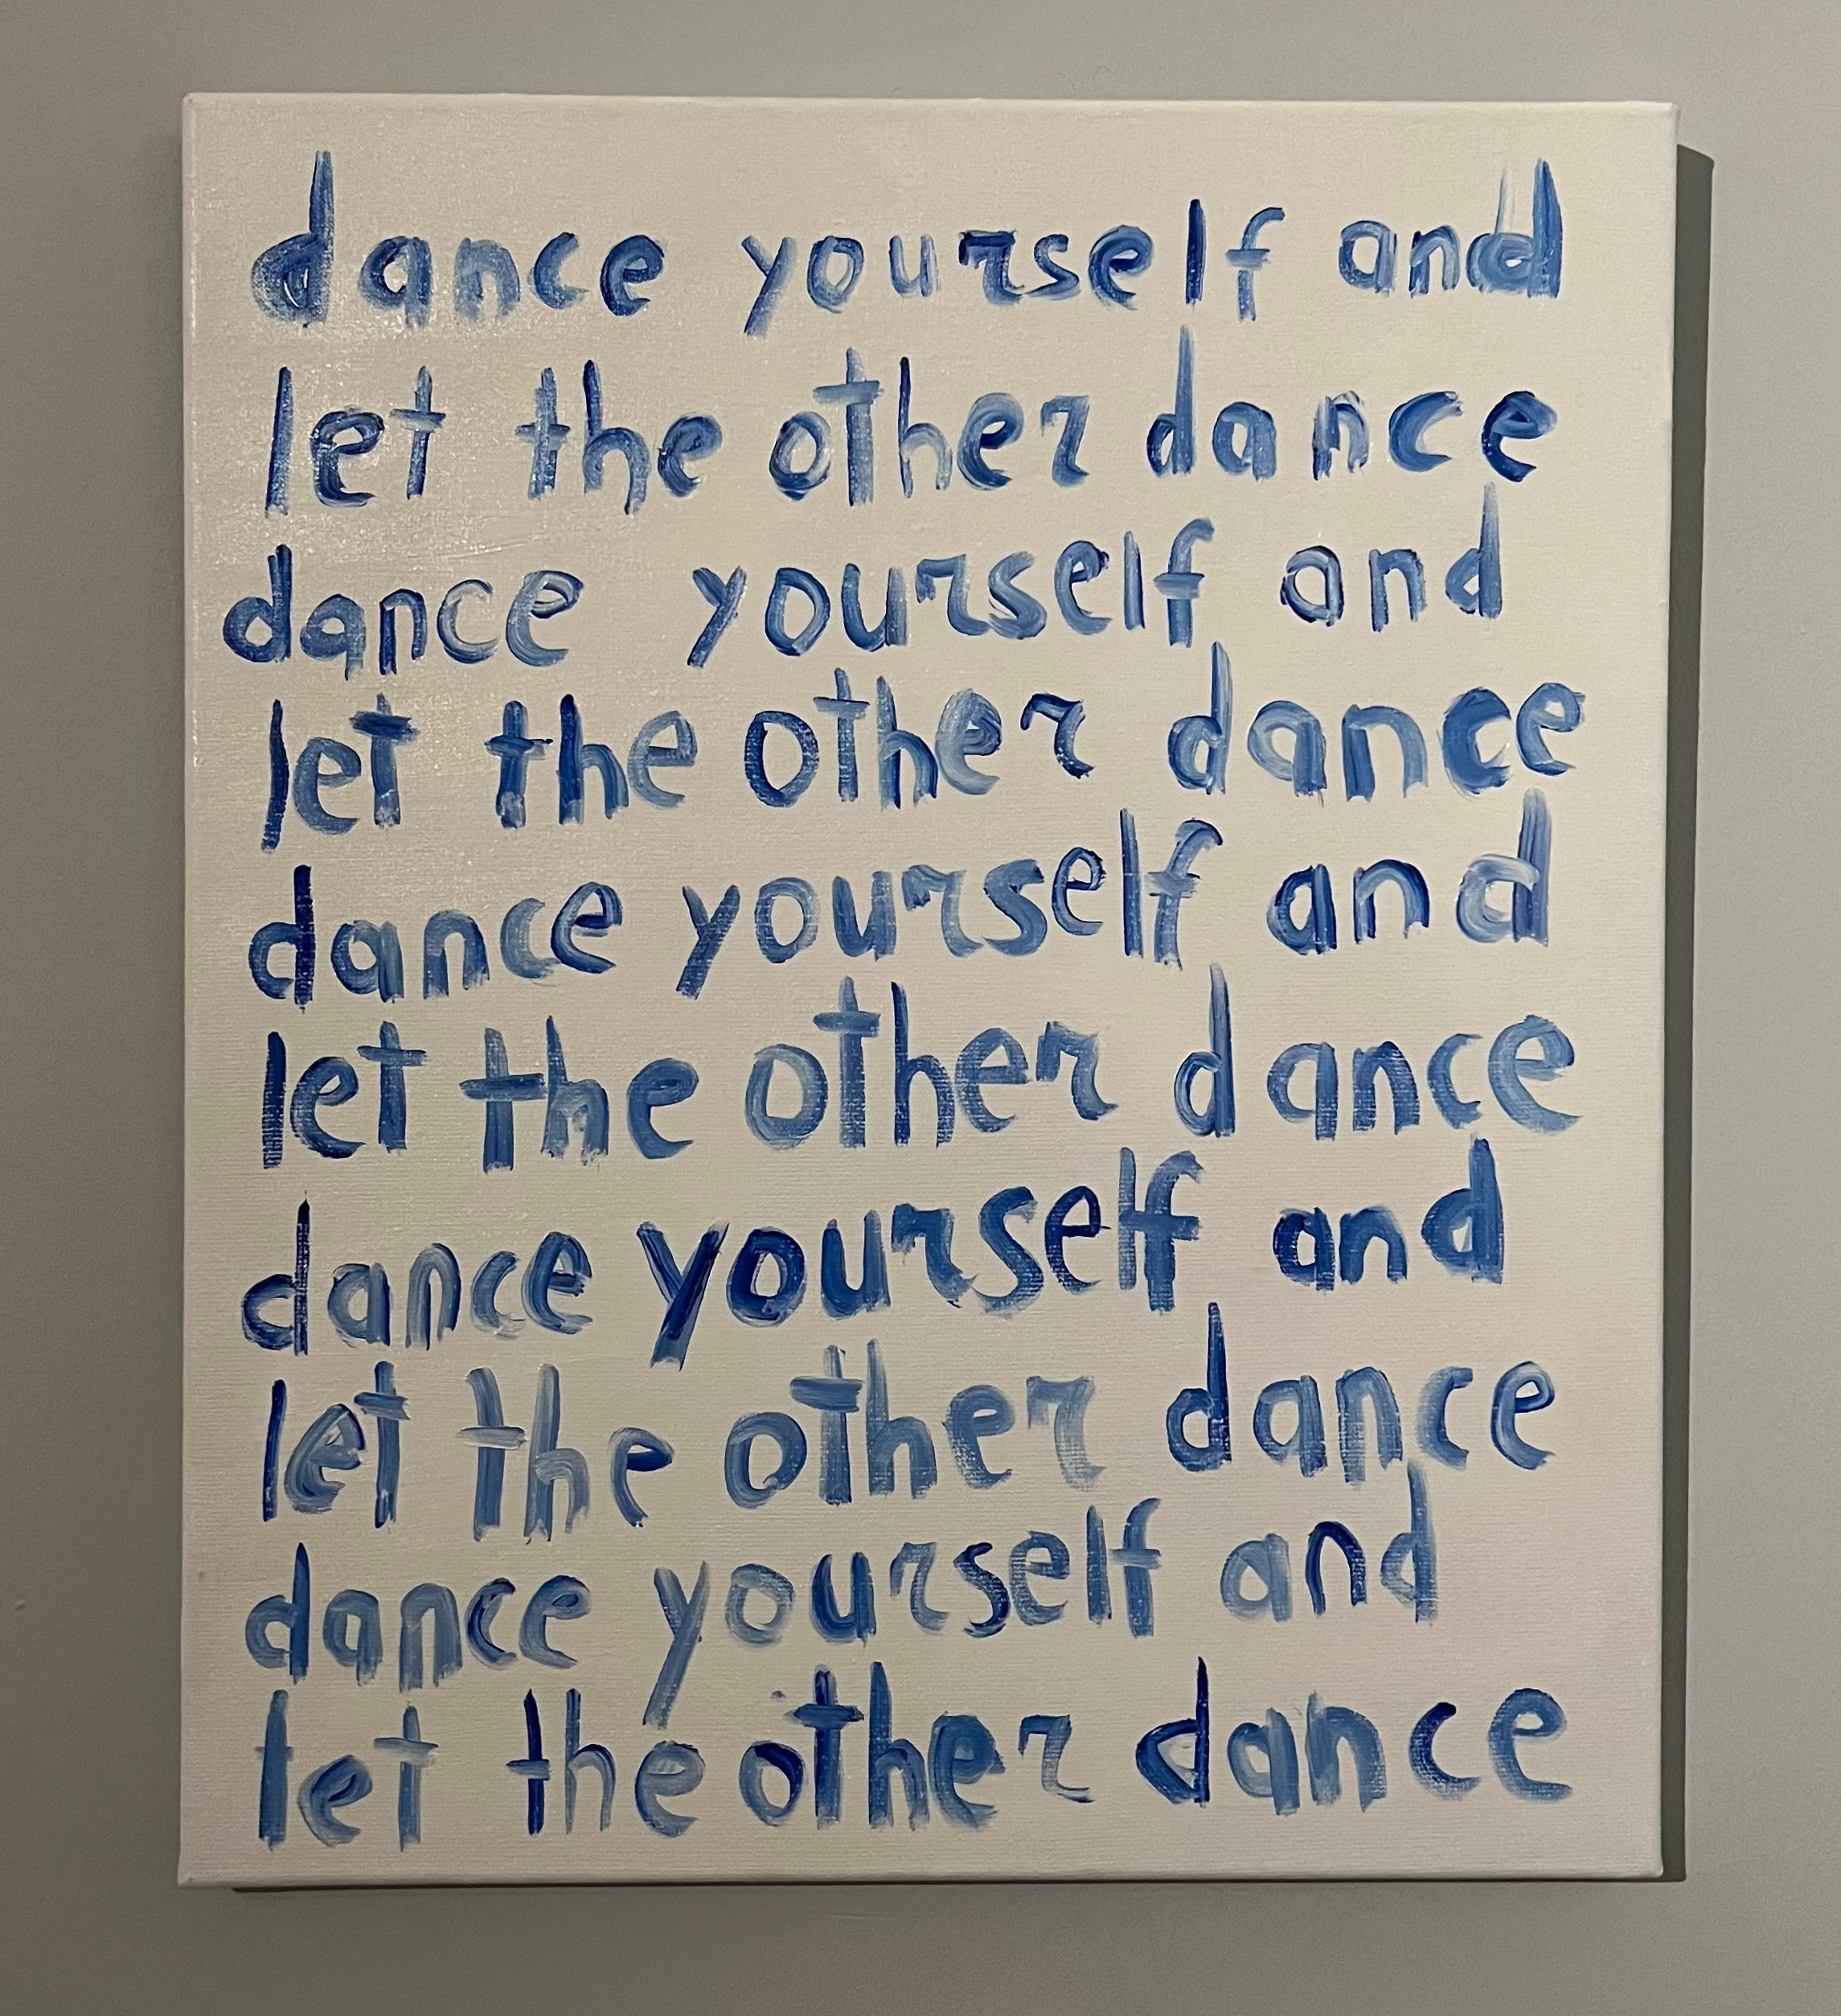 dance yourself and
let the other dance
dance yourself and
let the other dance
dance yourself and
let the other dance
dance yourself and
let the other dance
dance yourself and
let the other dance